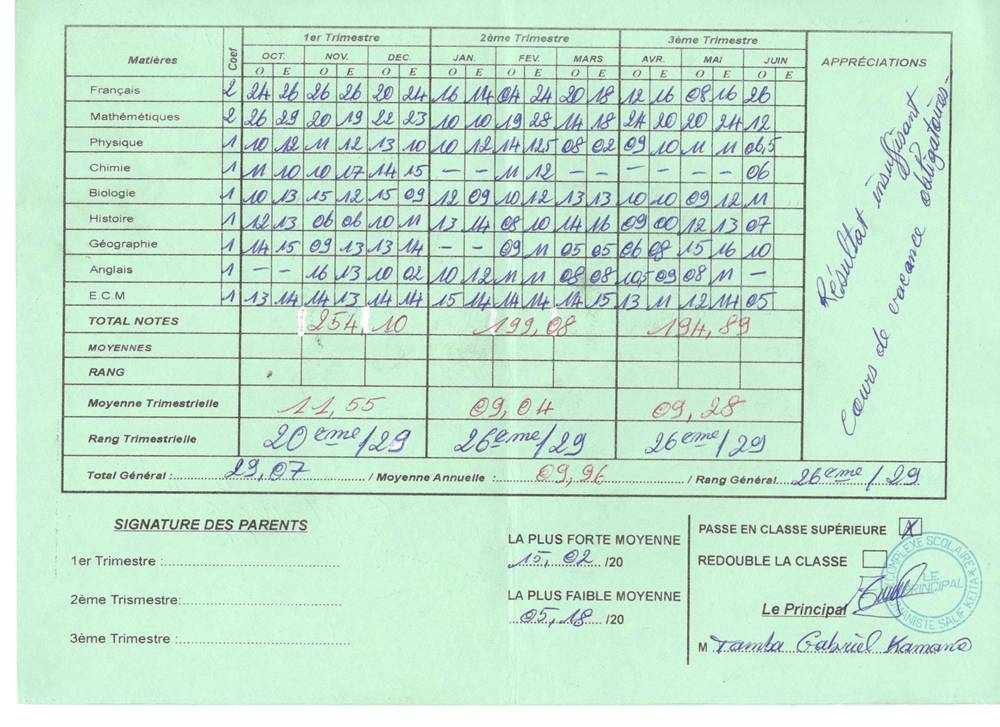 1er Trimestre 2ème Trimestre 3ème Trimestre
Matières Coef OCT. NOV. DEC. JAN. FEV. MARS AVR. MAI JUIN APPRÉCIATIONS
O E O E O E O E O E O E O E O E O E
Français 2 24 26 26 26 20 24 16 14 04 24 20 18 12 16 08 16 26
Mathémétiques 2 26 29 20 19 22 23 10 10 19 28 14 18 24 20 20 24 12
Physique 1 10 12 11 12 13 10 10 12 14 12,5 08 02 09 10 11 11 06,5
Chimie 1 11 10 10 17 14 15 - - 11 12 - - - - - - 06
Biologie 1 10 13 15 12 15 09 12 09 10 12 13 13 10 10 09 12 11
Histoire 1 12 13 06 06 10 11 13 14 08 10 14 16 09 00 12 13 07
Géographie 1 14 15 09 13 13 14 - - 09 11 05 05 06 08 15 16 10
Anglais 1 - - 16 13 10 02 10 12 11 11 08 08 10,5 09 08 11 -
E.C.M 1 13 14 14 13 14 14 15 14 14 14 14 15 13 11 12 14 05
Résultat insuffisant
cours de vacance obligatoires-
TOTAL NOTES 254,10 199,08 194,89
MOYENNES
RANG
Moyenne Trimestrielle 11,55 09,04 09,28
Rang Trimestrielle 20eme/29 26eme/29 26eme/29
Total Général : 29,07 / Moyenne Annuelle : 09,96 / Rang Général 26eme/29
SIGNATURE DES PARENTS
1er Trimestre :
2ème Trismestre:
3ème Trimestre :
LA PLUS FORTE MOYENNE
15,02 /20
LA PLUS FAIBLE MOYENNE
05,18 /20
PASSE EN CLASSE SUPÉRIEURE X
REDOUBLE LA CLASSE
Le Principal
COMPLEXE SCOLAIRE
LE PRINCIPAL
SALIF KEITA
M Tamba Gabriel Kamano